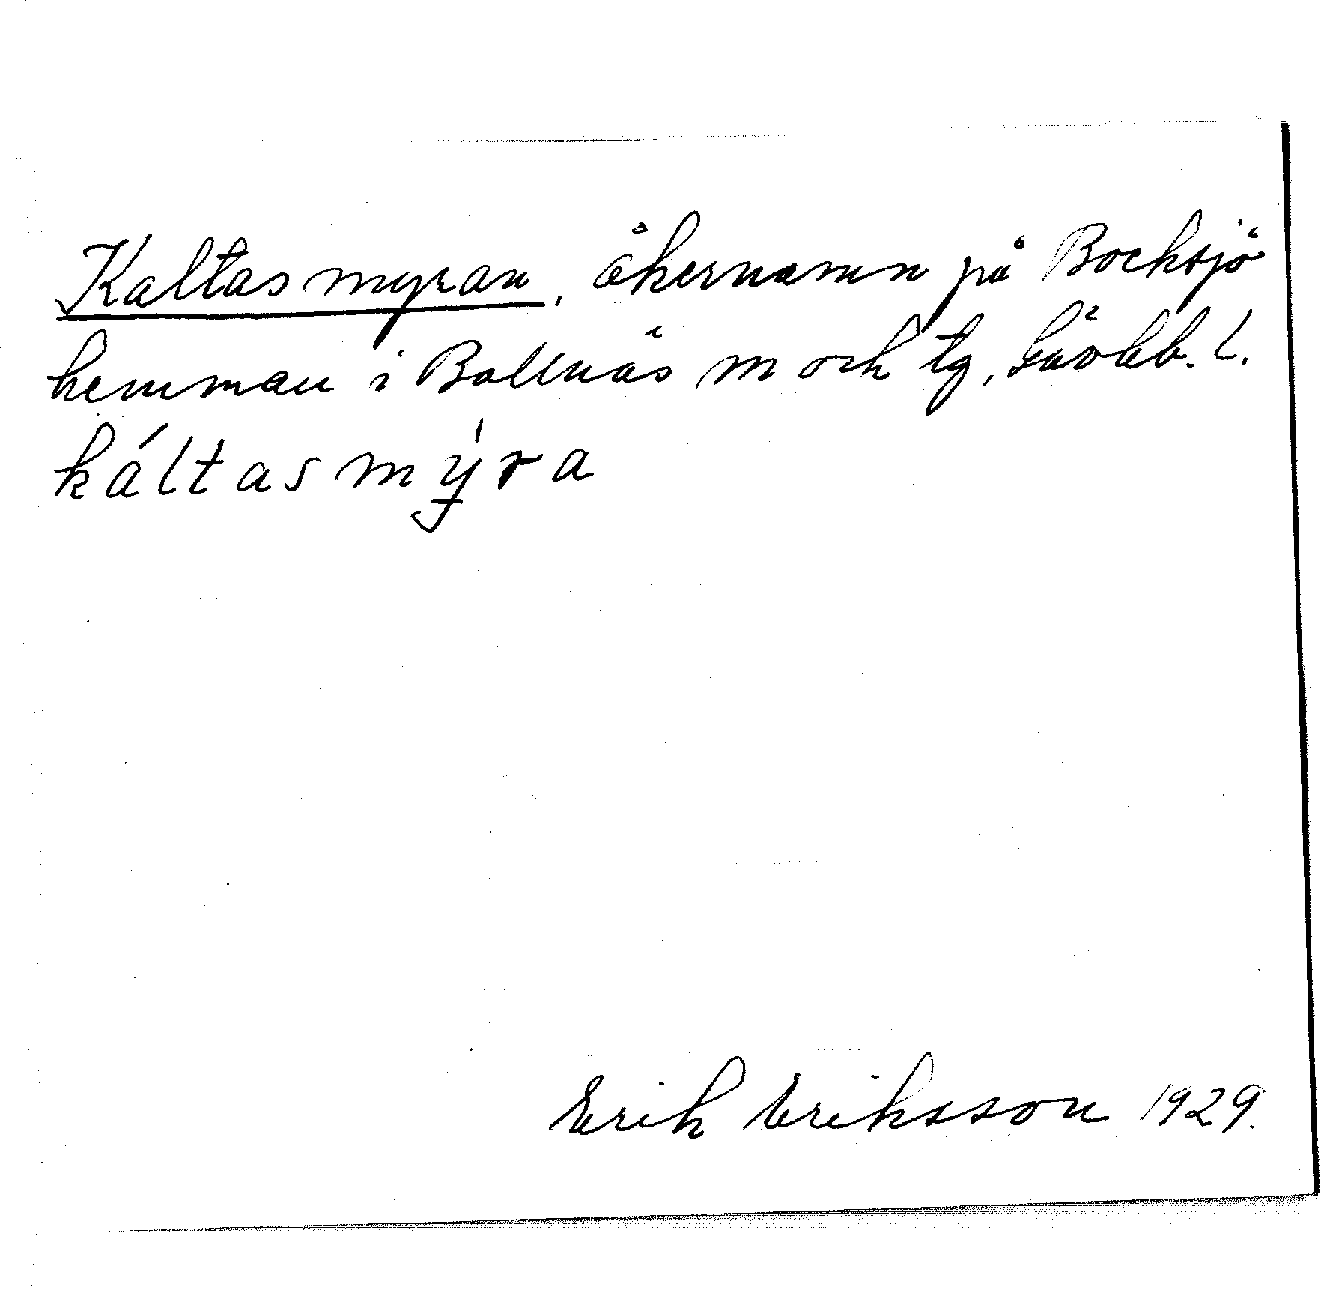 Kaltasmyran, åkernamn på Bocksjö
hemman i Bollnäs m och tg, Gävleb. l.
káltasmýra
Erik Eriksson 1929.